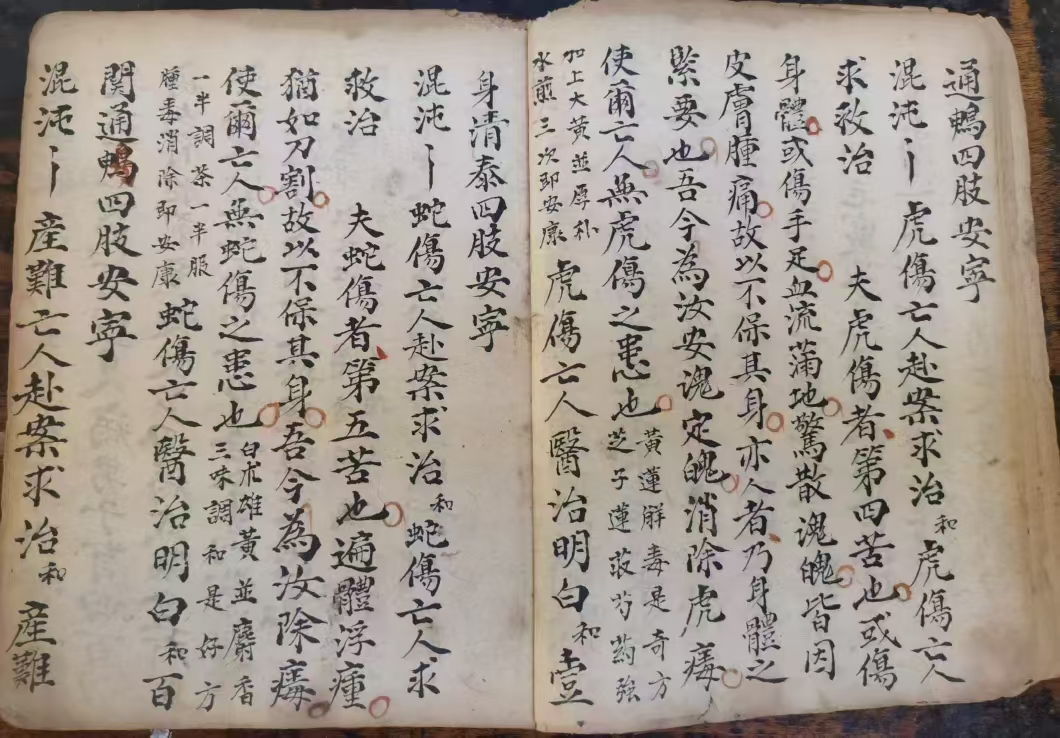 通鴨四肢安寧
混沌丨 虎傷亡人赴案求治和虎傷亡人
求救治 夫虎傷者第四苦也或傷
身體或傷手足血流滿地驚散魂魄皆因
皮膚腫痛故以不保其身亦人者乃身體之
緊要也吾今為汝安魂定魄消除虎痛
使爾亡人無虎傷之患也黃蓮解毒是奇方
芝子蓮蔌芍药強
加上大黃並厚朴
水煎三次即安康虎傷亡人醫治明白和壹
身清泰四肢安寧
混沌丨 蛇傷亡人赴案求治和蛇傷亡人求
救治 夫蛇傷者第五苦也遍體浮腫
猶如刀割故以不保其身吾今為汝除痛
使爾亡人無蛇傷之患也白朮雄黃並麝香
三味調和是好方
一半調茶一半服
腫毒消除即安康蛇傷亡人醫治明白和百
関通鴨四肢安寧
混沌丨產難亡人赴案求治和產難